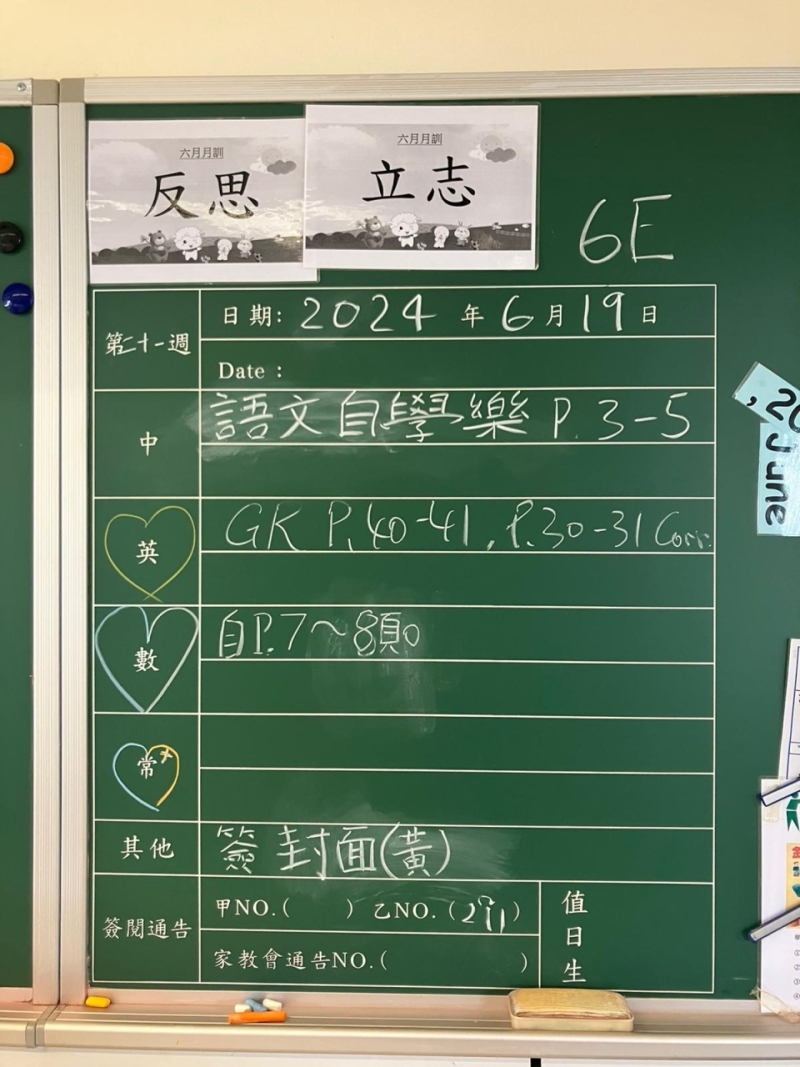 六月月訓
反思
六月月訓
立志
6E
第二十一週
日期: 2024 年 6 月 19 日
Date :
中
語文自學樂 P.3-5
英
GK P.40-41, P.30-31 Corr.
數
自P.7~8頁。
常
其他
簽封面(黃)
簽閱通告
甲NO.( ) 乙NO.( )
家教會通告NO.( )
值日生
, 20
June